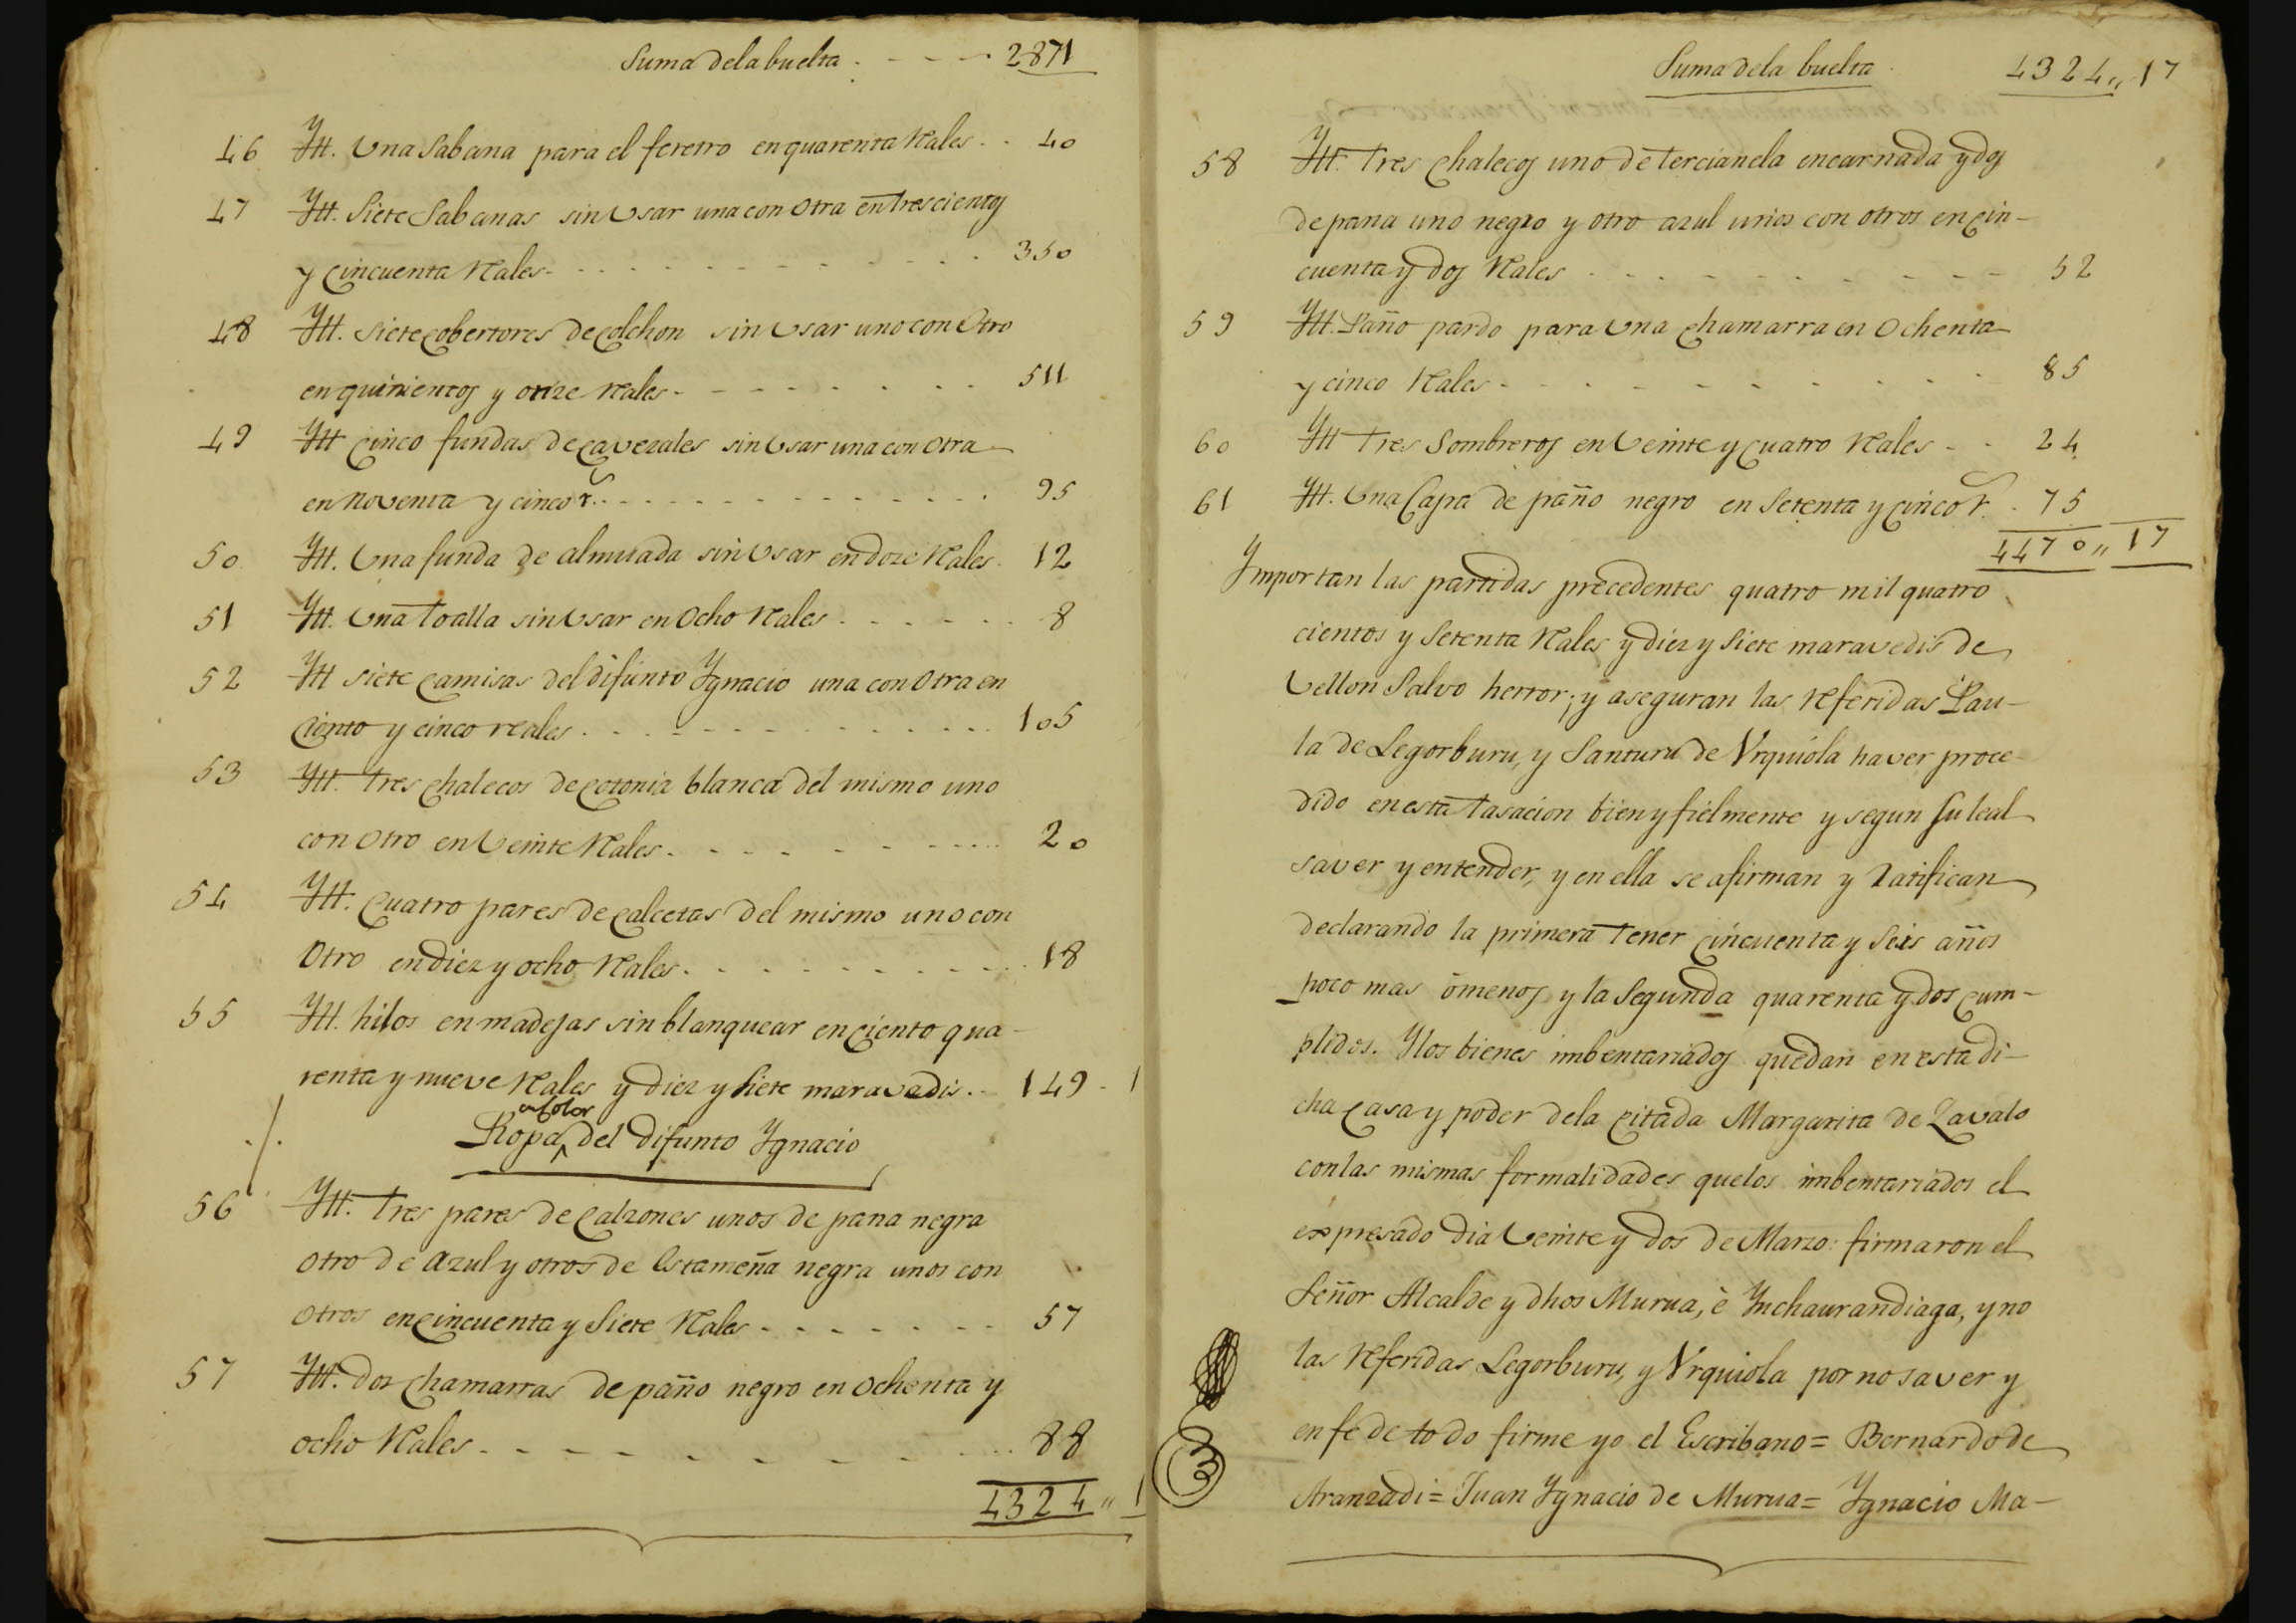 Suma dela buelta . - - - 2871
46 Ytt. Una Sabana para el feretro en quarenta Reales . . 40
47 Ytt. Siete Sabanas sin Usar una con Otra en trescientos
y cincuenta Reales - . . . . . . . . . . . 350
48 Ytt. Siete cobertores de colchon sin Usar uno con Otro
en quinientos y onze Reales - - - - . . . - 511
49 Ytt Cinco fundas de cavezales sin Usar una con Otra
en Noventa y cinco rs. . . . . . . . . . . . 95
50 Ytt. Una funda de almuada sin Usar en doze Reales . 12
51 Ytt. Una toalla sin Usar en Ocho Reales . . . . . . 8
52 Ytt Siete camisas del difunto Ygnacio una con Otra en
ciento y cinco reales . . . . . . . . . . . . 105
53 Ytt. tres chalecos de cotonia blanca del mismo uno
con Otro en Veinte Reales . . . . . . . . . . 20
54 Ytt. Cuatro pares de calcetas del mismo uno con
Otro en diez y ocho Reales . . . . . . . . . . 18
55 Ytt. hilos en madejas sin blanquear en ciento qua-
renta y nueve Reales y diez y siete maravadis . - 149 - 1
en Color
Ropa ^ del difunto Ygnacio
56 Ytt. tres pares de calzones unos de pana negra
otro de azul y otros de Estameña negra unos con
otros en cincuenta y Siete Reales - - - . . . - 57
57 Ytt. dos chamarras de paño negro en ochenta y
ocho Reales - - - - . . . . . . . 88
4324 " 1
Suma dela buelta . 4324 " 17
58 Ytt. tres chalecos uno de tercianela encarnada y dos
de pana uno negro y otro azul unos con otros en cin-
cuenta y dos Reales . . . . . . . . . - 52
59 Ytt. Paño pardo para Una chamarra en Ochenta
y cinco Reales - . . . . . . . . . 85
60 Ytt tres Sombreros en Veinte y cuatro Reales - - 24
61 Ytt. Una Capa de paño negro en Setenta y cinco rs . 75
4470 " 17
Ymportan las partidas precedentes quatro mil quatro
cientos y Setenta Reales y diez y Siete maravedis de
Vellon Salvo herror; y aseguran las Referidas Pau-
la de Legorburu, y Santuru de Vrquiola haver proce-
dido en esta tasacion bien y fielmente y segun su leal
saver y entender, y en ella se afirman y Ratifican
declarando la primera tener cincuenta y Seis años
poco mas ò menos y la Segunda quarenta y dos cum-
plidos. Y los bienes imbentariados quedan en esta di-
cha casa y poder dela citada Margarita de Zavalo
con las mismas formalidades que los imbentariados el
expresado dia Veinte y dos de Marzo: firmaron el
Señor Alcalde y dhos Murua, è Ynchaurandiaga, y no
las Referidas Legorburu, y Vrquiola por no saver y
en fe de todo firme yo el Escribano = Bernardo de
Aranzadi = Juan Ygnacio de Murua = Ygnacio Ma-